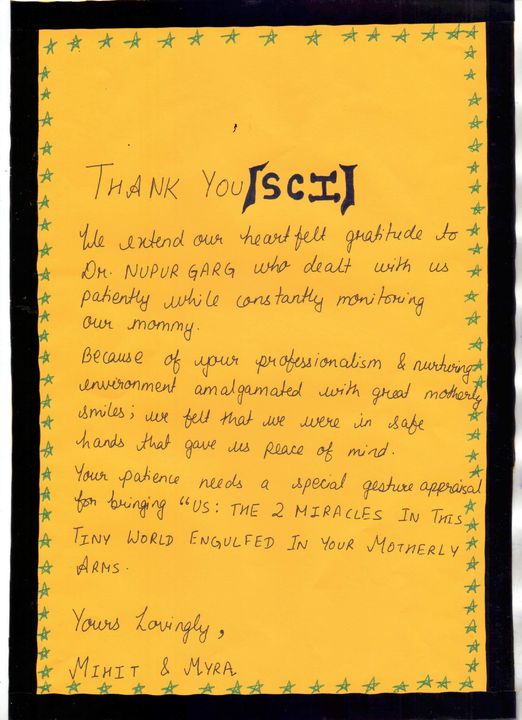 THANK YOU [SCI]
We extend our heartfelt gratitude to
Dr. NUPUR GARG who dealt with us
patiently while constantly monitoring
our mommy.
Because of your professionalism & nurturing
environment amalgamated with great motherly
smiles; we felt that we were in safe
hands that gave us peace of mind.
Your patience needs a special gesture appraisal
for bringing "US: THE 2 MIRACLES IN THIS
TINY WORLD ENGULFED IN YOUR MOTHERLY
ARMS.
Yours Lovingly,
MIHIT & MYRA